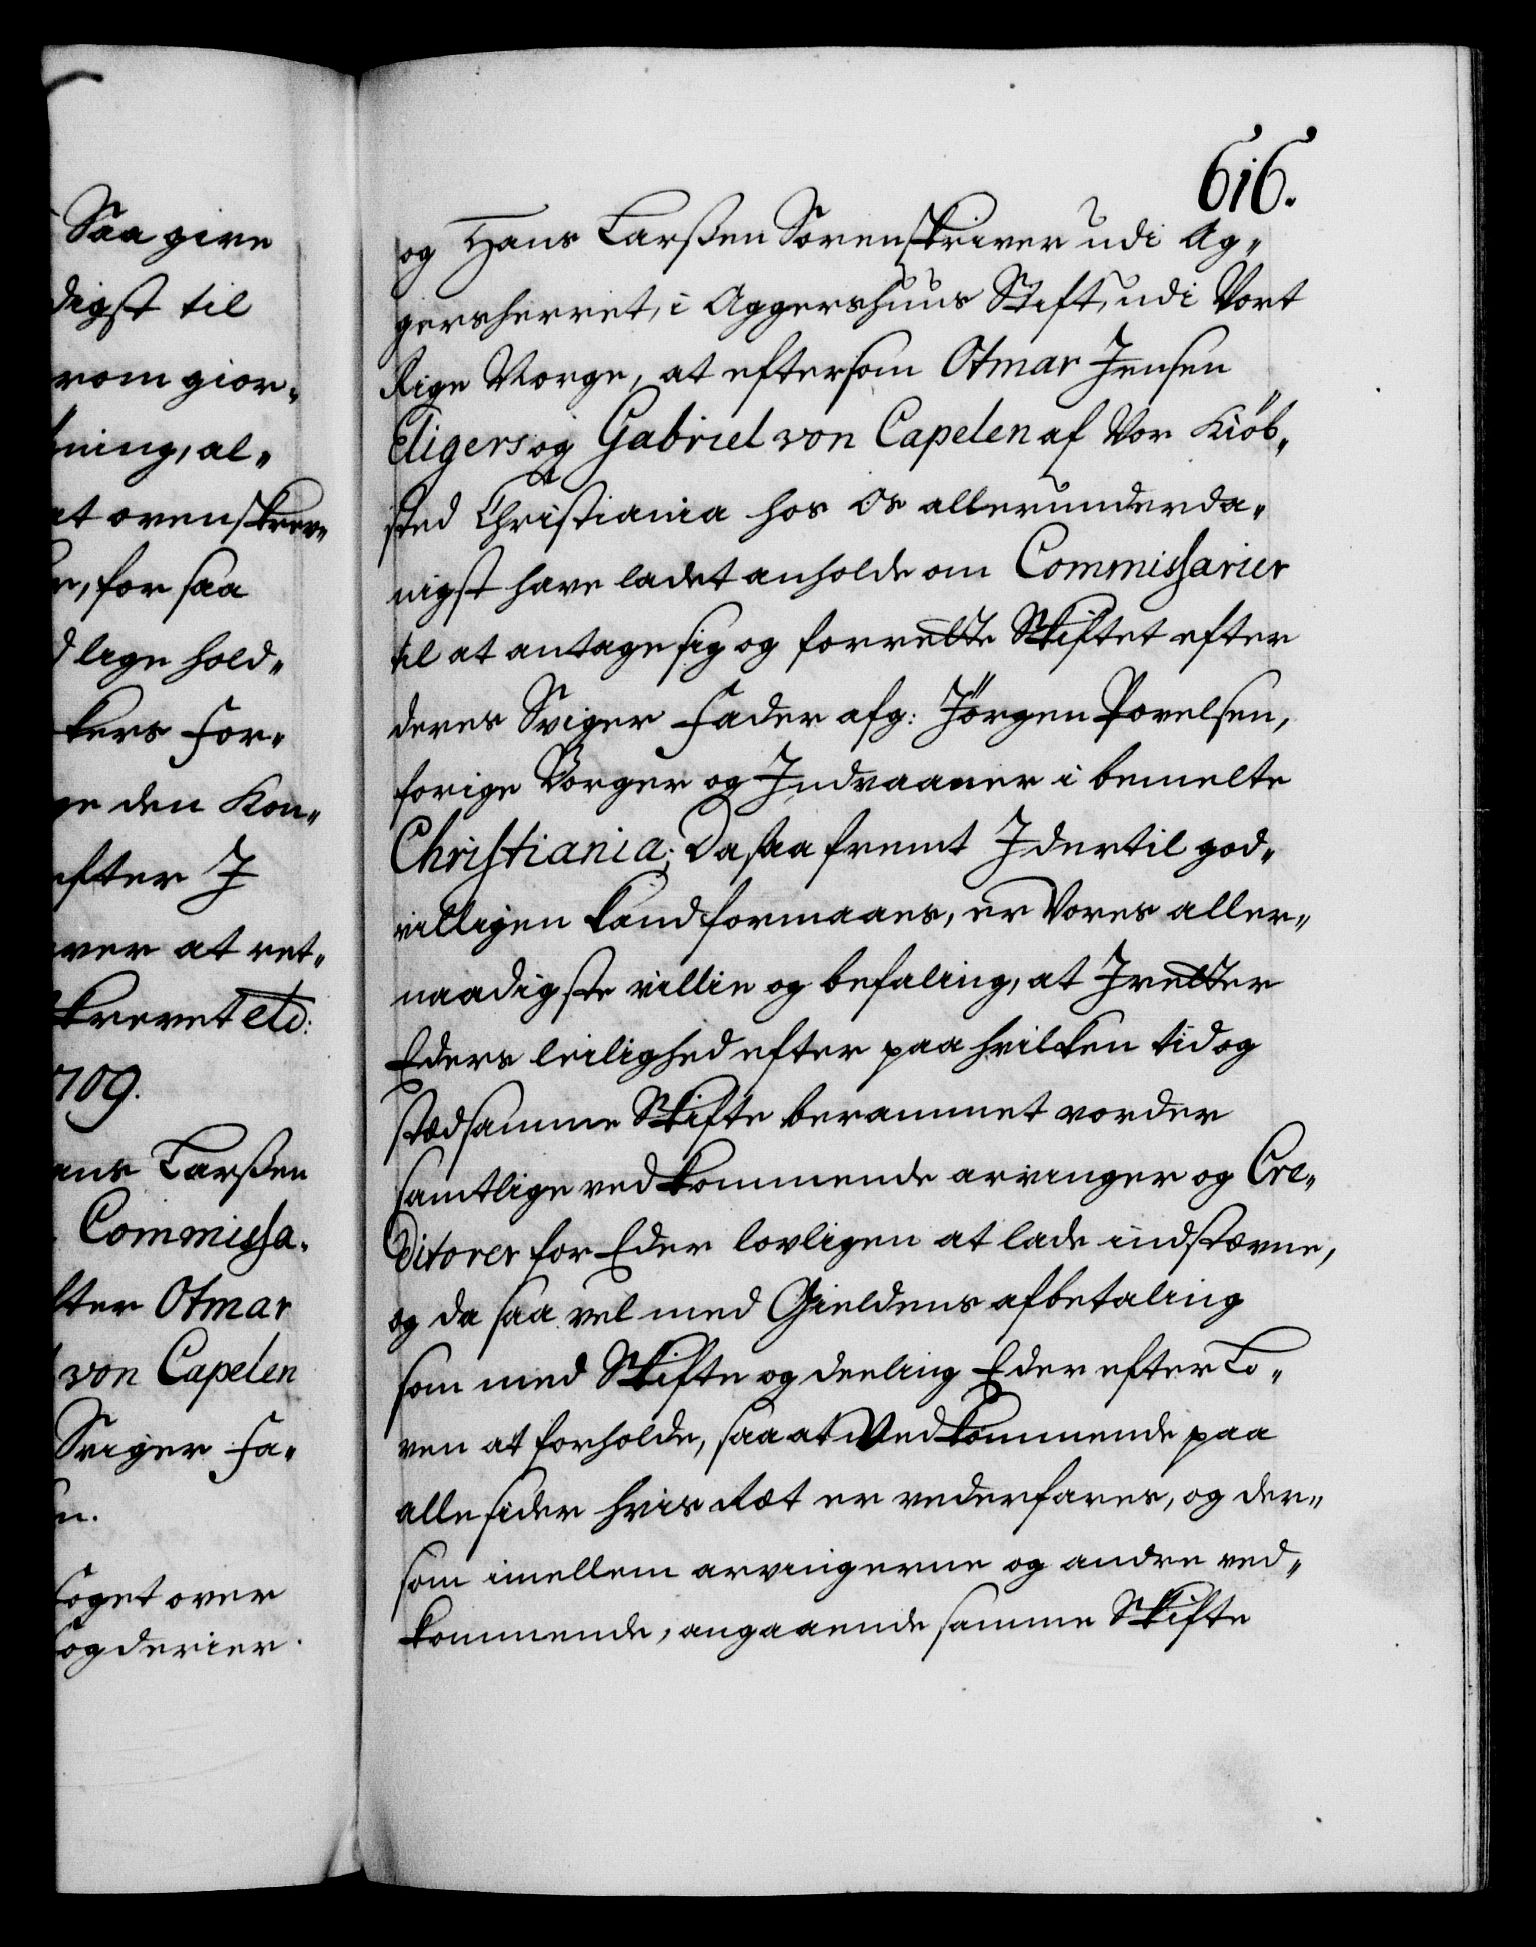 Saa give
digst til
rom gior-
ning, al-
at ovenskrev-
for saa
lige hold-
kers for-
ge den Kon-
efter I
ver at ret-
skrevet etc:
1709.
ans Larssen
Commissa-
fter Otmar
von Capelen
Sviger Fa-
n.
foget over
fogderier.
616.
og Hans Larssen Sorenskriver udi Ag-
gersherret, i Aggershuus Stift, udi Vort
Rige Norge, at eftersom Otmar Jensen
Eligers og Gabriel von Capelen af Vor Kiöb-
sted Christiania hos Os allerunderda-
nigst have ladet anholde om Commissarier
til at antage sig og forrette Skiftet efter
deres Sviger Fader afg: Jörgen Povelsen,
forige Borger og Indvaaner i bemelte
Christiania; Da saa fremt I dertil god-
villigen kand formaaes, er Vores aller-
naadigste villie og befaling, at I retter
Eders leilighed efter paa hvilken tid og
sted samme Skifte berammet vorder
samtlige vedkommende arvinger og Cre-
ditorer for Eder lovligen at lade indstævne,
og da saa vel med Gieldens afbetaling
som med Skifte og deeling Eder efter Lo-
ven at forholde, saa at Vedkommende paa
alle sider hvis Ræt er vederfares, og der-
som imellem arvingerne og andre ved-
kommende, angaaende samme Skifte